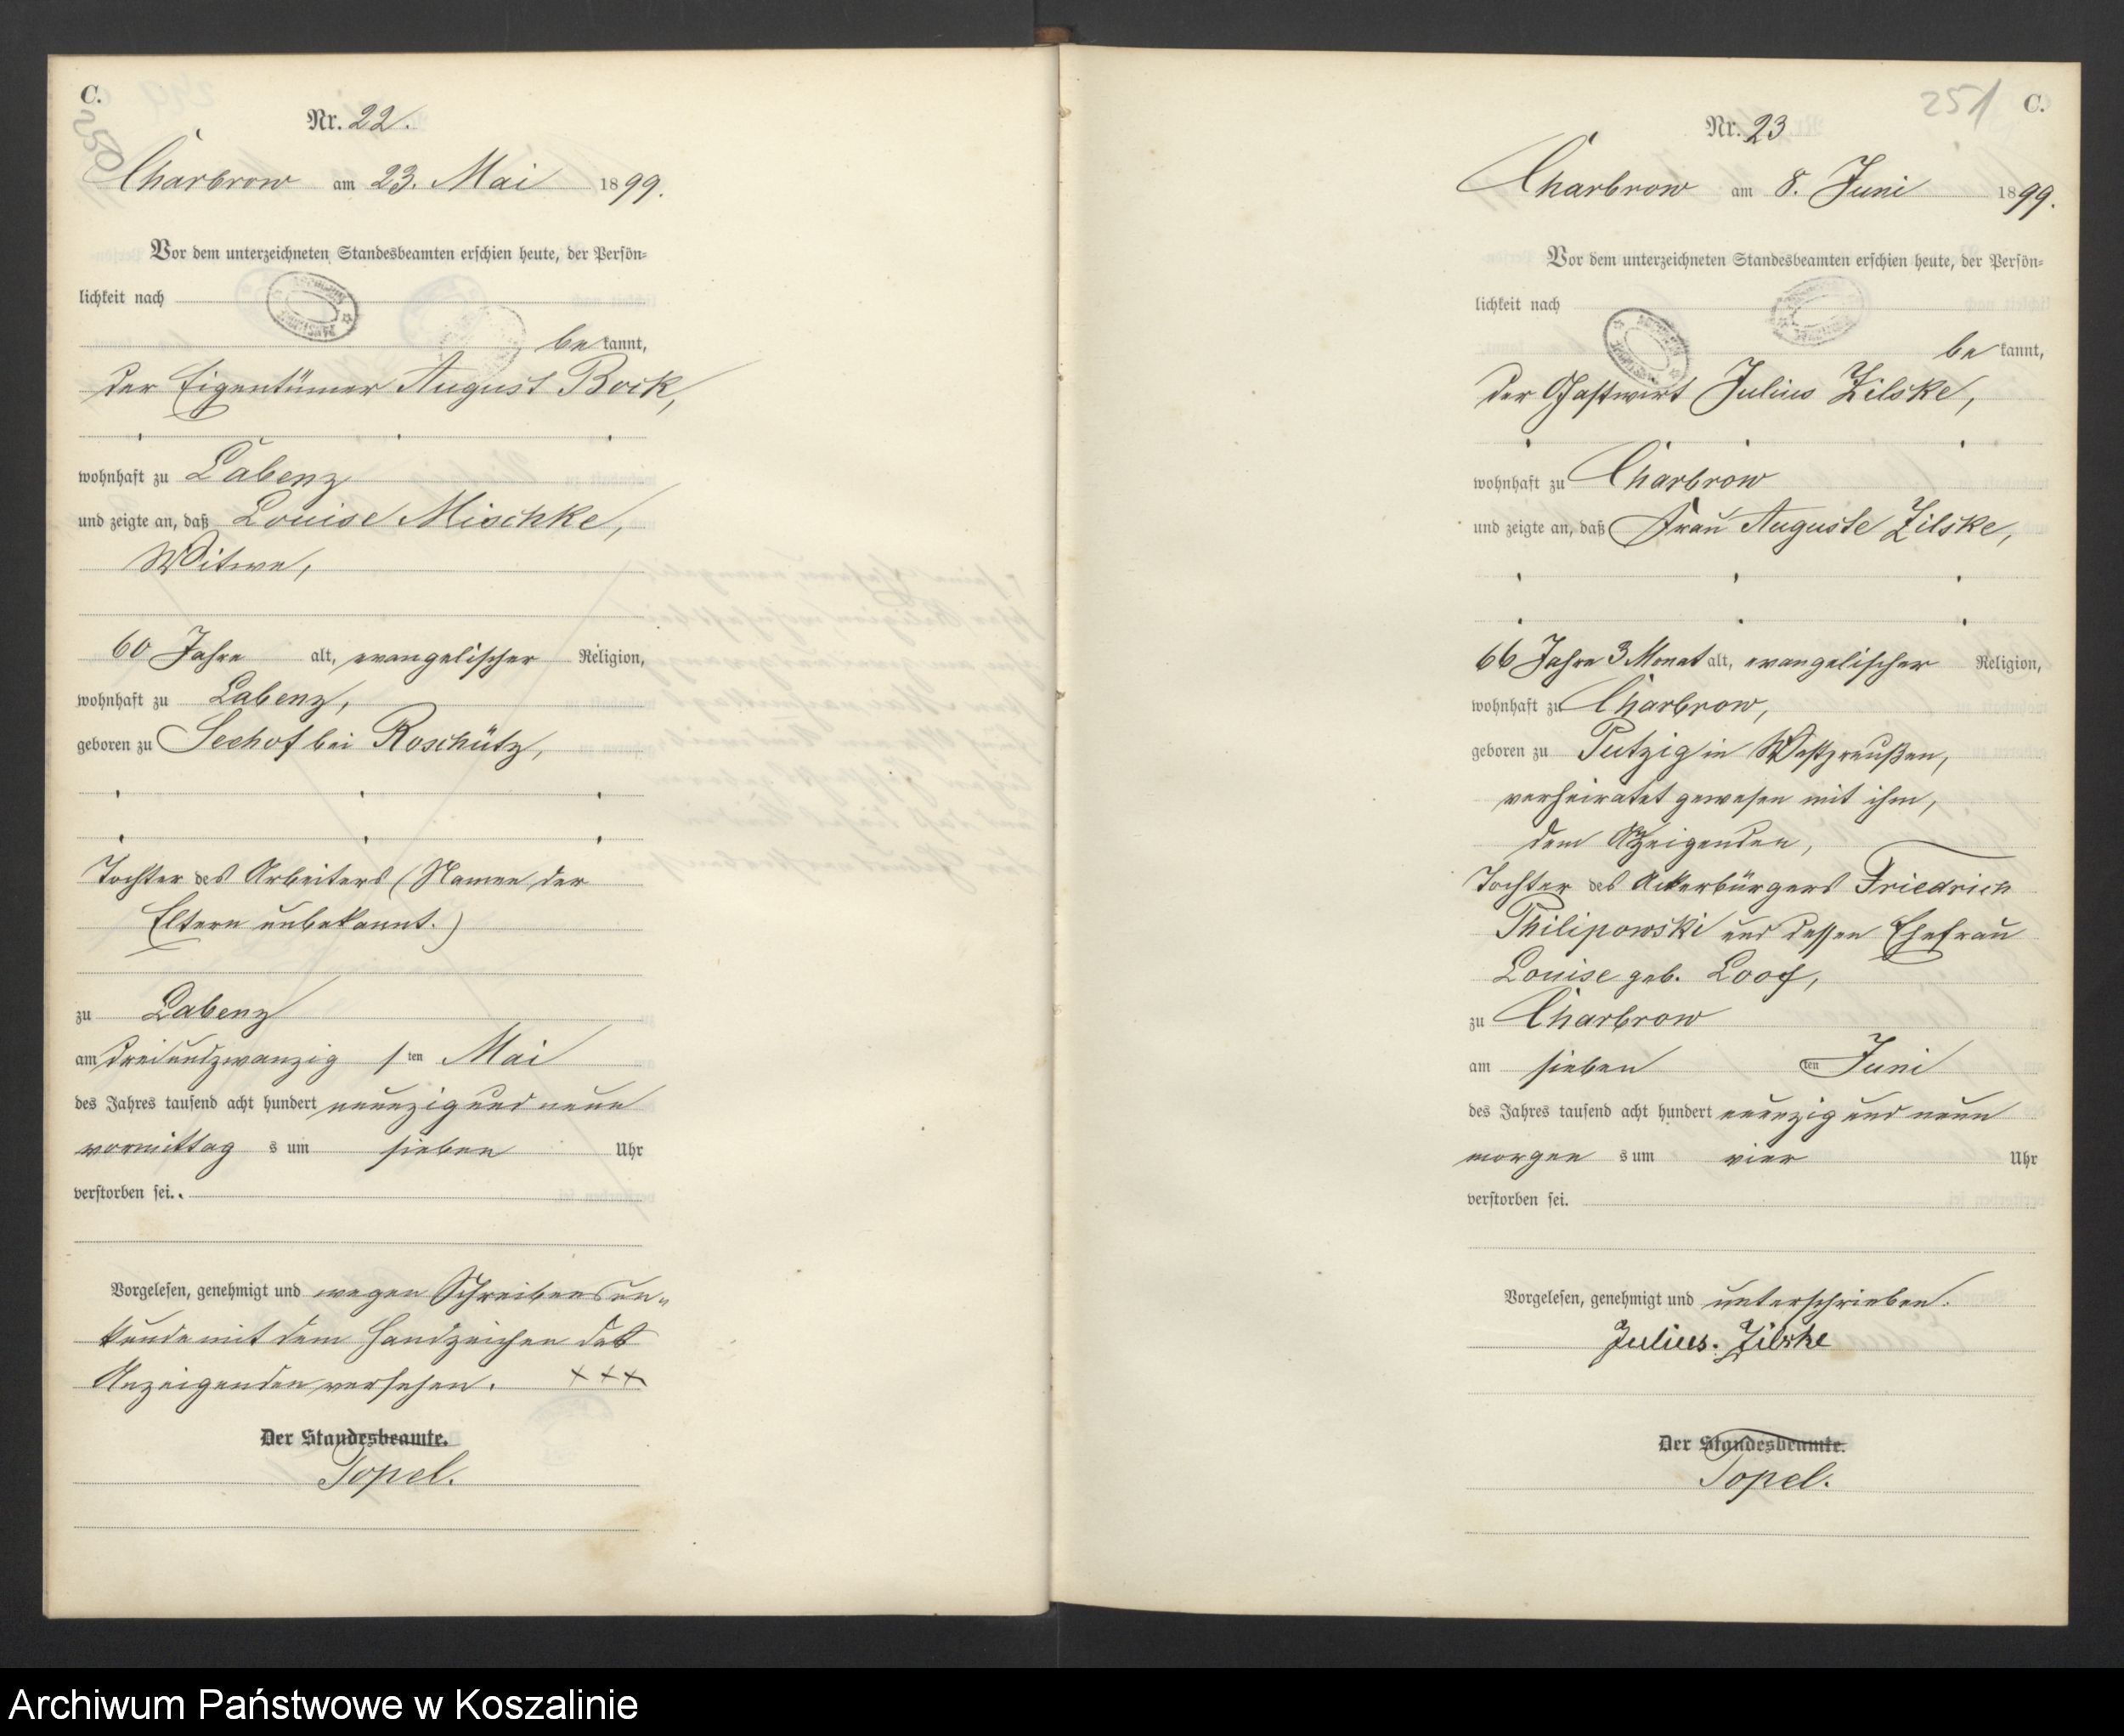 C.
250
Nr. 22.
Charbrow am 23. Mai 1899.
Vor dem unterzeichneten Standesbeamten erschien heute, der Persön-
lichkeit nach
bekannt,
der Eigentümer August Bock,
wohnhaft zu Labenz
und zeigte an, daß Louise Mischke,
Witwe,
60 Jahre alt, evangelischer Religion,
wohnhaft zu Labenz,
geboren zu Seehof bei Roschütz,
Tochter des Arbeiters (Namen der
Eltern unbekannt.)
zu Labenz
am dreiundzwanzig sten Mai
des Jahres tausend acht hundert neunzig und neun
vormittag s um sieben Uhr
verstorben sei.
Vorgelesen, genehmigt und wegen Schreibensun-
kunde mit dem Handzeichen des
Anzeigenden versehen. +++
Der Standesbeamte.
Topel.
251
C.
Nr. 23
Charbrow am 8. Juni 1899.
Vor dem unterzeichneten Standesbeamten erschien heute, der Persön-
lichkeit nach
bekannt,
der Gastwirt Julius Zilske,
wohnhaft zu Charbrow
und zeigte an, daß Frau Auguste Zilske,
66 Jahre 3 Monat alt, evangelischer Religion,
wohnhaft zu Charbrow,
geboren zu Putzig in Westpreußen,
verheiratet gewesen mit ihm,
dem Anzeigenden,
Tochter des Ackerbürgers Friedrich
Philipowski und dessen Ehefrau
Louise geb. Loof,
zu Charbrow
am sieben ten Juni
des Jahres tausend acht hundert neunzig und neun
morgen s um vier Uhr
verstorben sei.
Vorgelesen, genehmigt und unterschrieben.
Julius. Zilske
Der Standesbeamte.
Topel.
Archiwum Państwowe w Koszalinie